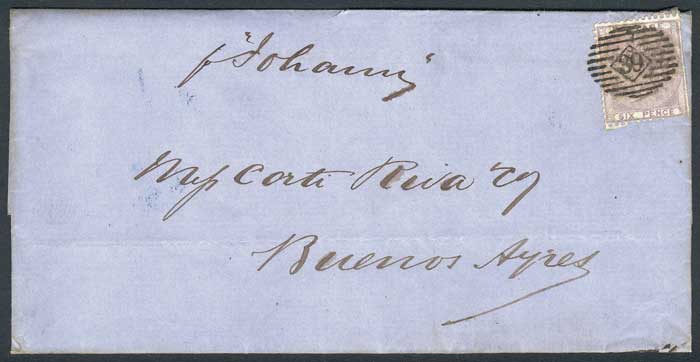 p "Johann"
59
SIX PENCE
Messrs Corti Riva & Co
Buenos Ayres